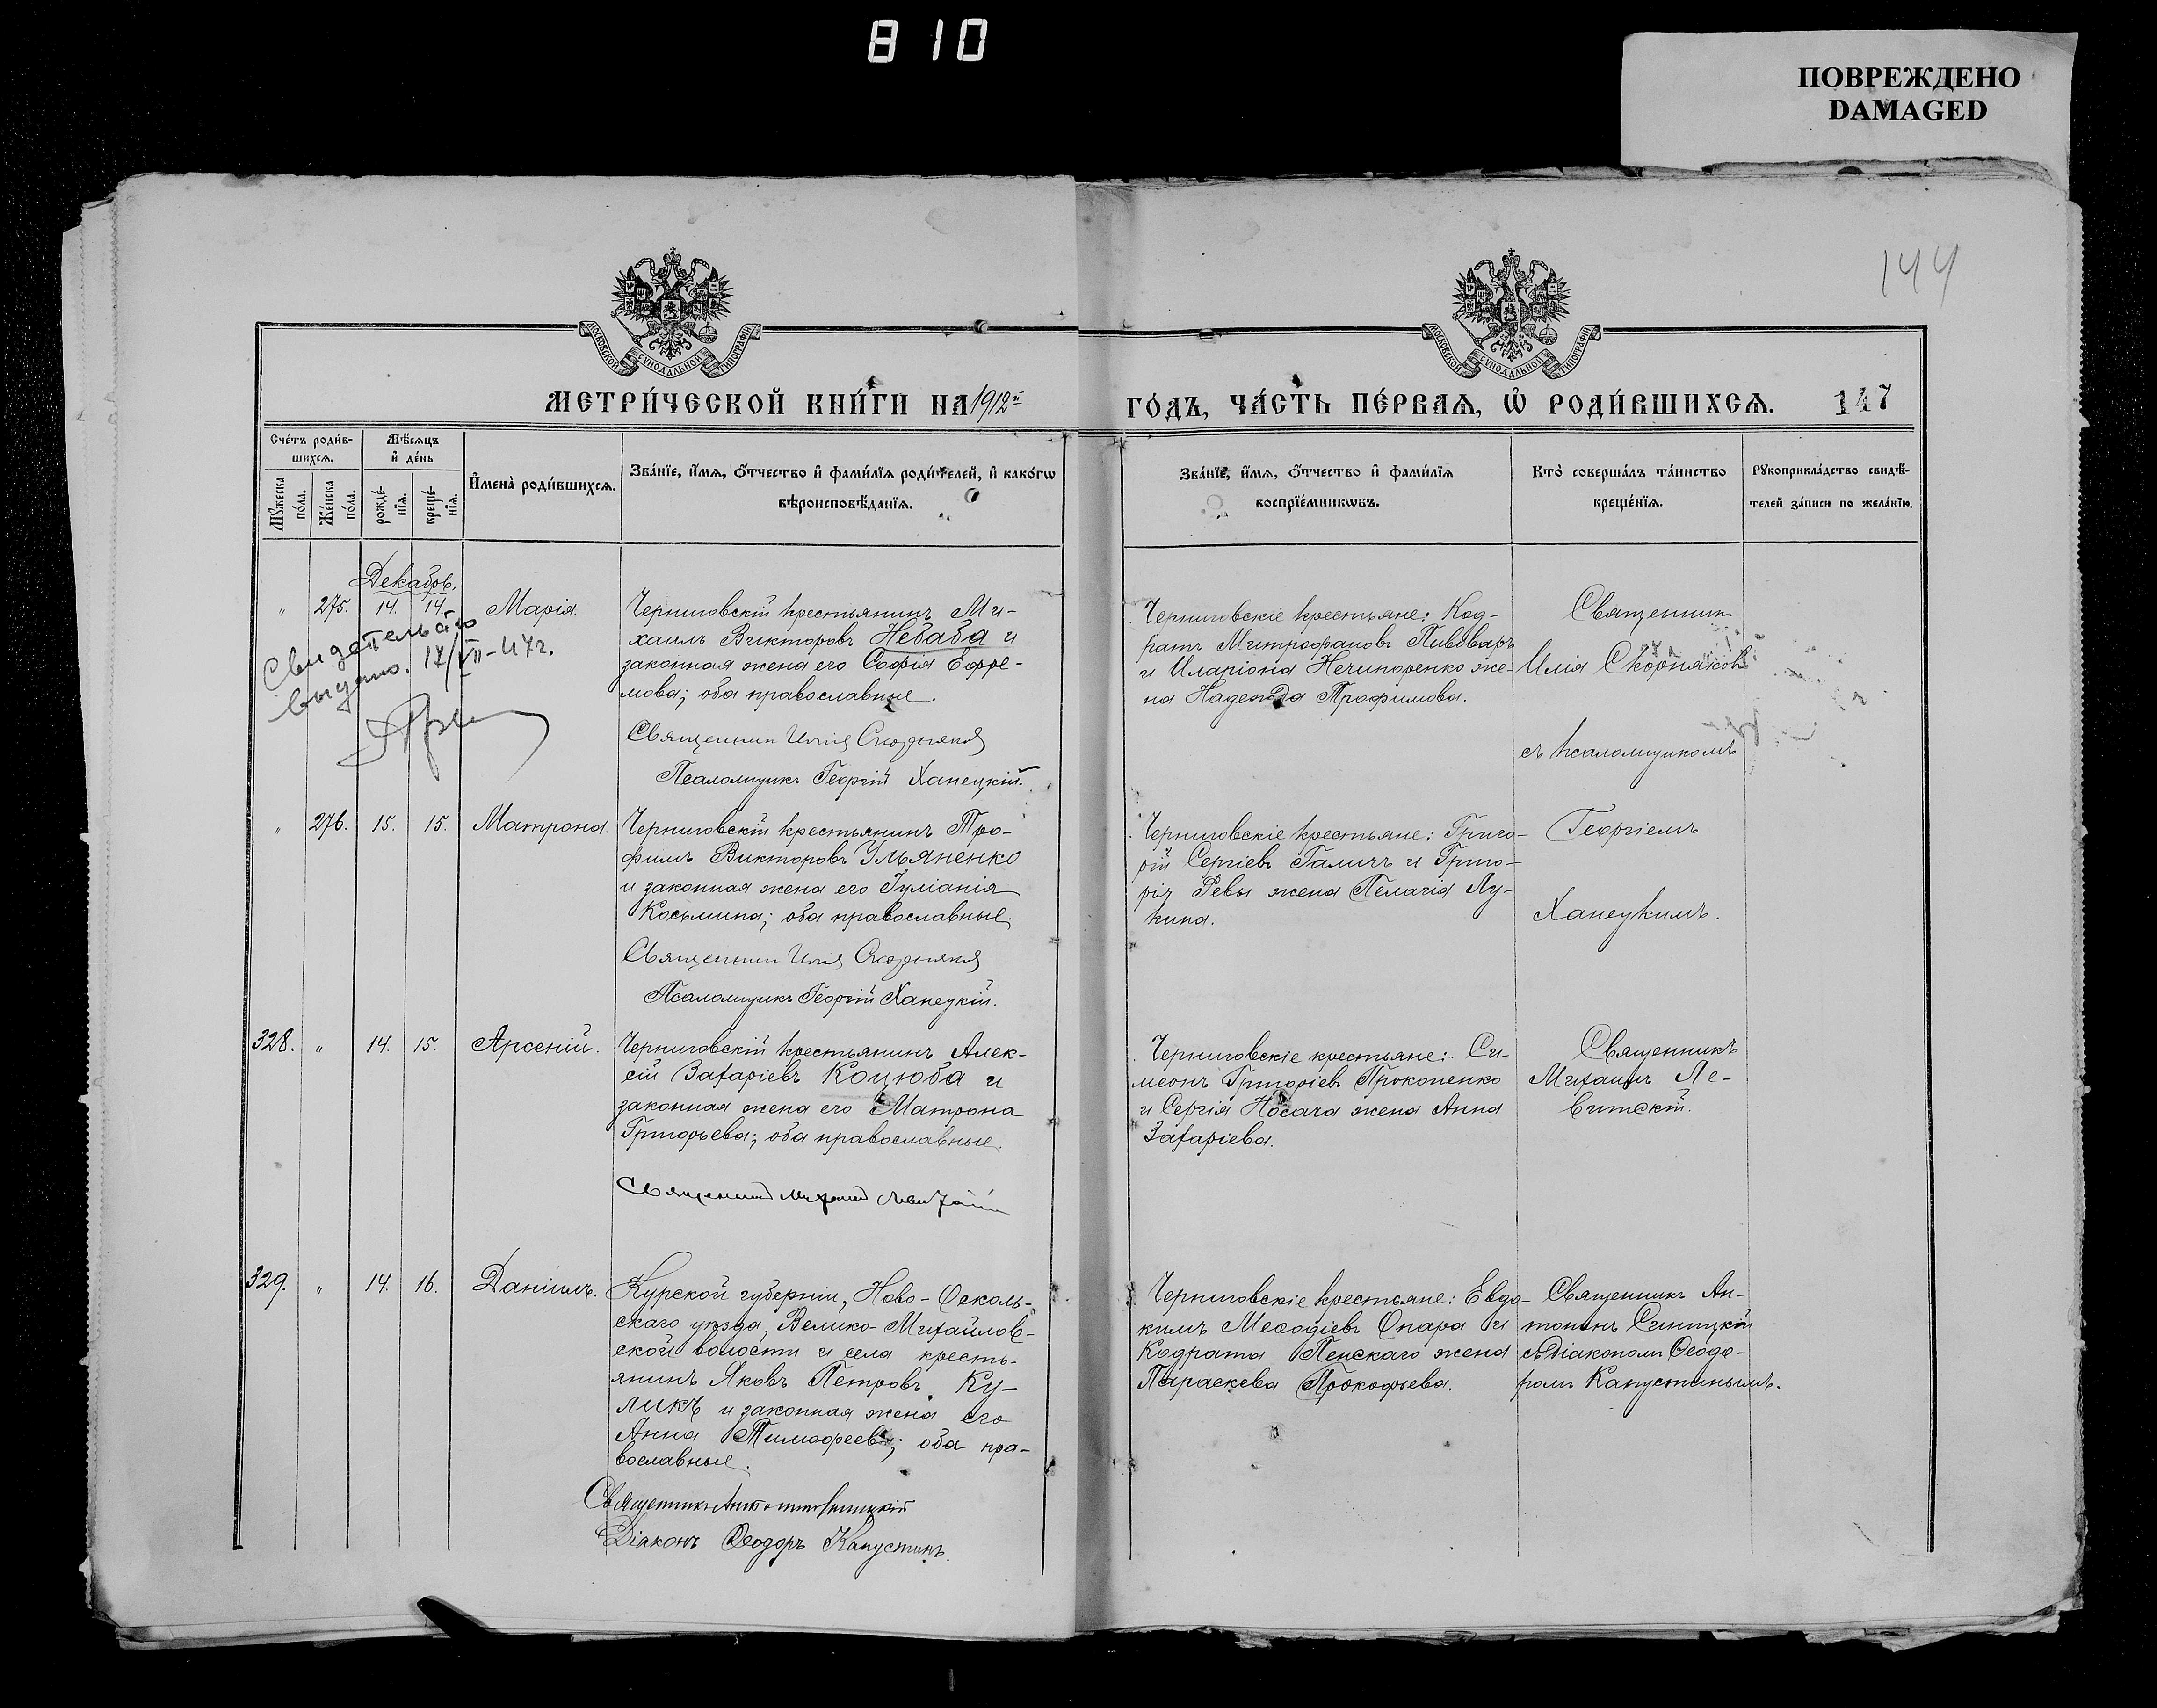 810
ПОВРЕЖДЕНО
DAMAGED
144
МОСКОВСКОЙ СѴНОДАЛЬНОЙ ТИПОГРАФІИ
МОСКОВСКОЙ СѴНОДАЛЬНОЙ ТИПОГРАФІИ
МЕТРИ́ЧЕСКОЙ КНИ́ГИ НА 1912й
ГО́ДЪ, ЧА́СТЬ ПЕ́РВАѦ, Ѡ҆ РОДИ́ВШИХСѦ. 147
Сче́тъ роди́вшихсѧ.
Мꙋ́жеска по́ла.
Же́нска по́ла.
Мѣ́сѧцъ и҆ де́нь
рожде́нїѧ.
креще́нїѧ.
И҆мена̀ роди́вшихсѧ.
Зва́нїе, и҆́мѧ, ѻ҆́тчество и҆ фами́лїѧ роди́телей, и҆ како́гѡ
вѣроисповѣ́данїѧ.
Зва́нїе, и҆́мѧ, ѻ҆́тчество и҆ фами́лїѧ
воспрїе́мникѡвъ.
Кто̀ соверша́лъ та́инство
креще́нїѧ.
Рꙋкоприкла́дство свидѣ́-
телей за́писи по жела́нїю.
Декабрь.
" 275. 14. 14. Марія.
Черниговскій крестьянинъ Ми-
хаилъ Викторовъ Небаба и
законная жена его Софія Ефре-
мова; оба православные.
Священник Илия Скорняков
Псаломщикъ Георгій Ханецкій.
Свидетельство
выдано. 17/VII-47г.
Черниговскіе крестьяне: Код-
ратъ Митрофановъ Пивоваръ
и Иларіона Нечипоренко же-
на Надежда Трофимова.
Священник
Илія Скорняковъ
съ псаломщикомъ
Георгіемъ
Ханецкимъ.
" 276. 15. 15. Матрона.
Черниговскій крестьянинъ Тро-
фимъ Викторовъ Ульяненко
и законная жена его Іуліанія
Косьмина; оба православные.
Священник Илия Скорняков
Псаломщикъ Георгій Ханецкій.
Черниговскіе крестьяне: Григо-
рій Сергіевъ Галичъ и Григо-
рія Ревы жена Пелагія Лу-
кина.
328. " 14. 15. Арсеній.
Черниговскій крестьянинъ Алек-
сій Захаріевъ Коцюба и
законная жена его Матрона
Григорьева; оба православные.
Священник Михаил Левитскій
Черниговскіе крестьяне:- Си-
меонъ Григоріевъ Прокопенко
и Сергія Носача жена Анна
Захаріева.
Священникъ
Михаилъ Ле-
витскій.
329. " 14. 16. Даніилъ.
Курской губерніи, Ново-Осколь-
скаго уѣзда, Велико-Михайлов-
ской волости и села кресть-
янинъ Яковъ Петровъ Ку-
ликъ и законная жена его
Анна Тимофеева; оба пра-
вославные.
Священникъ Антонин Синицкій
Діаконъ Ѳеодоръ Капустинъ.
Черниговскіе крестьяне: Евдо-
кимъ Меѳодіевъ Опара и
Кодрата Пенскаго жена
Параскева Прокофьева.
Священникъ Ан-
тонинъ Синицкій
съ діакономъ Ѳеодо-
ромъ Капустинымъ.